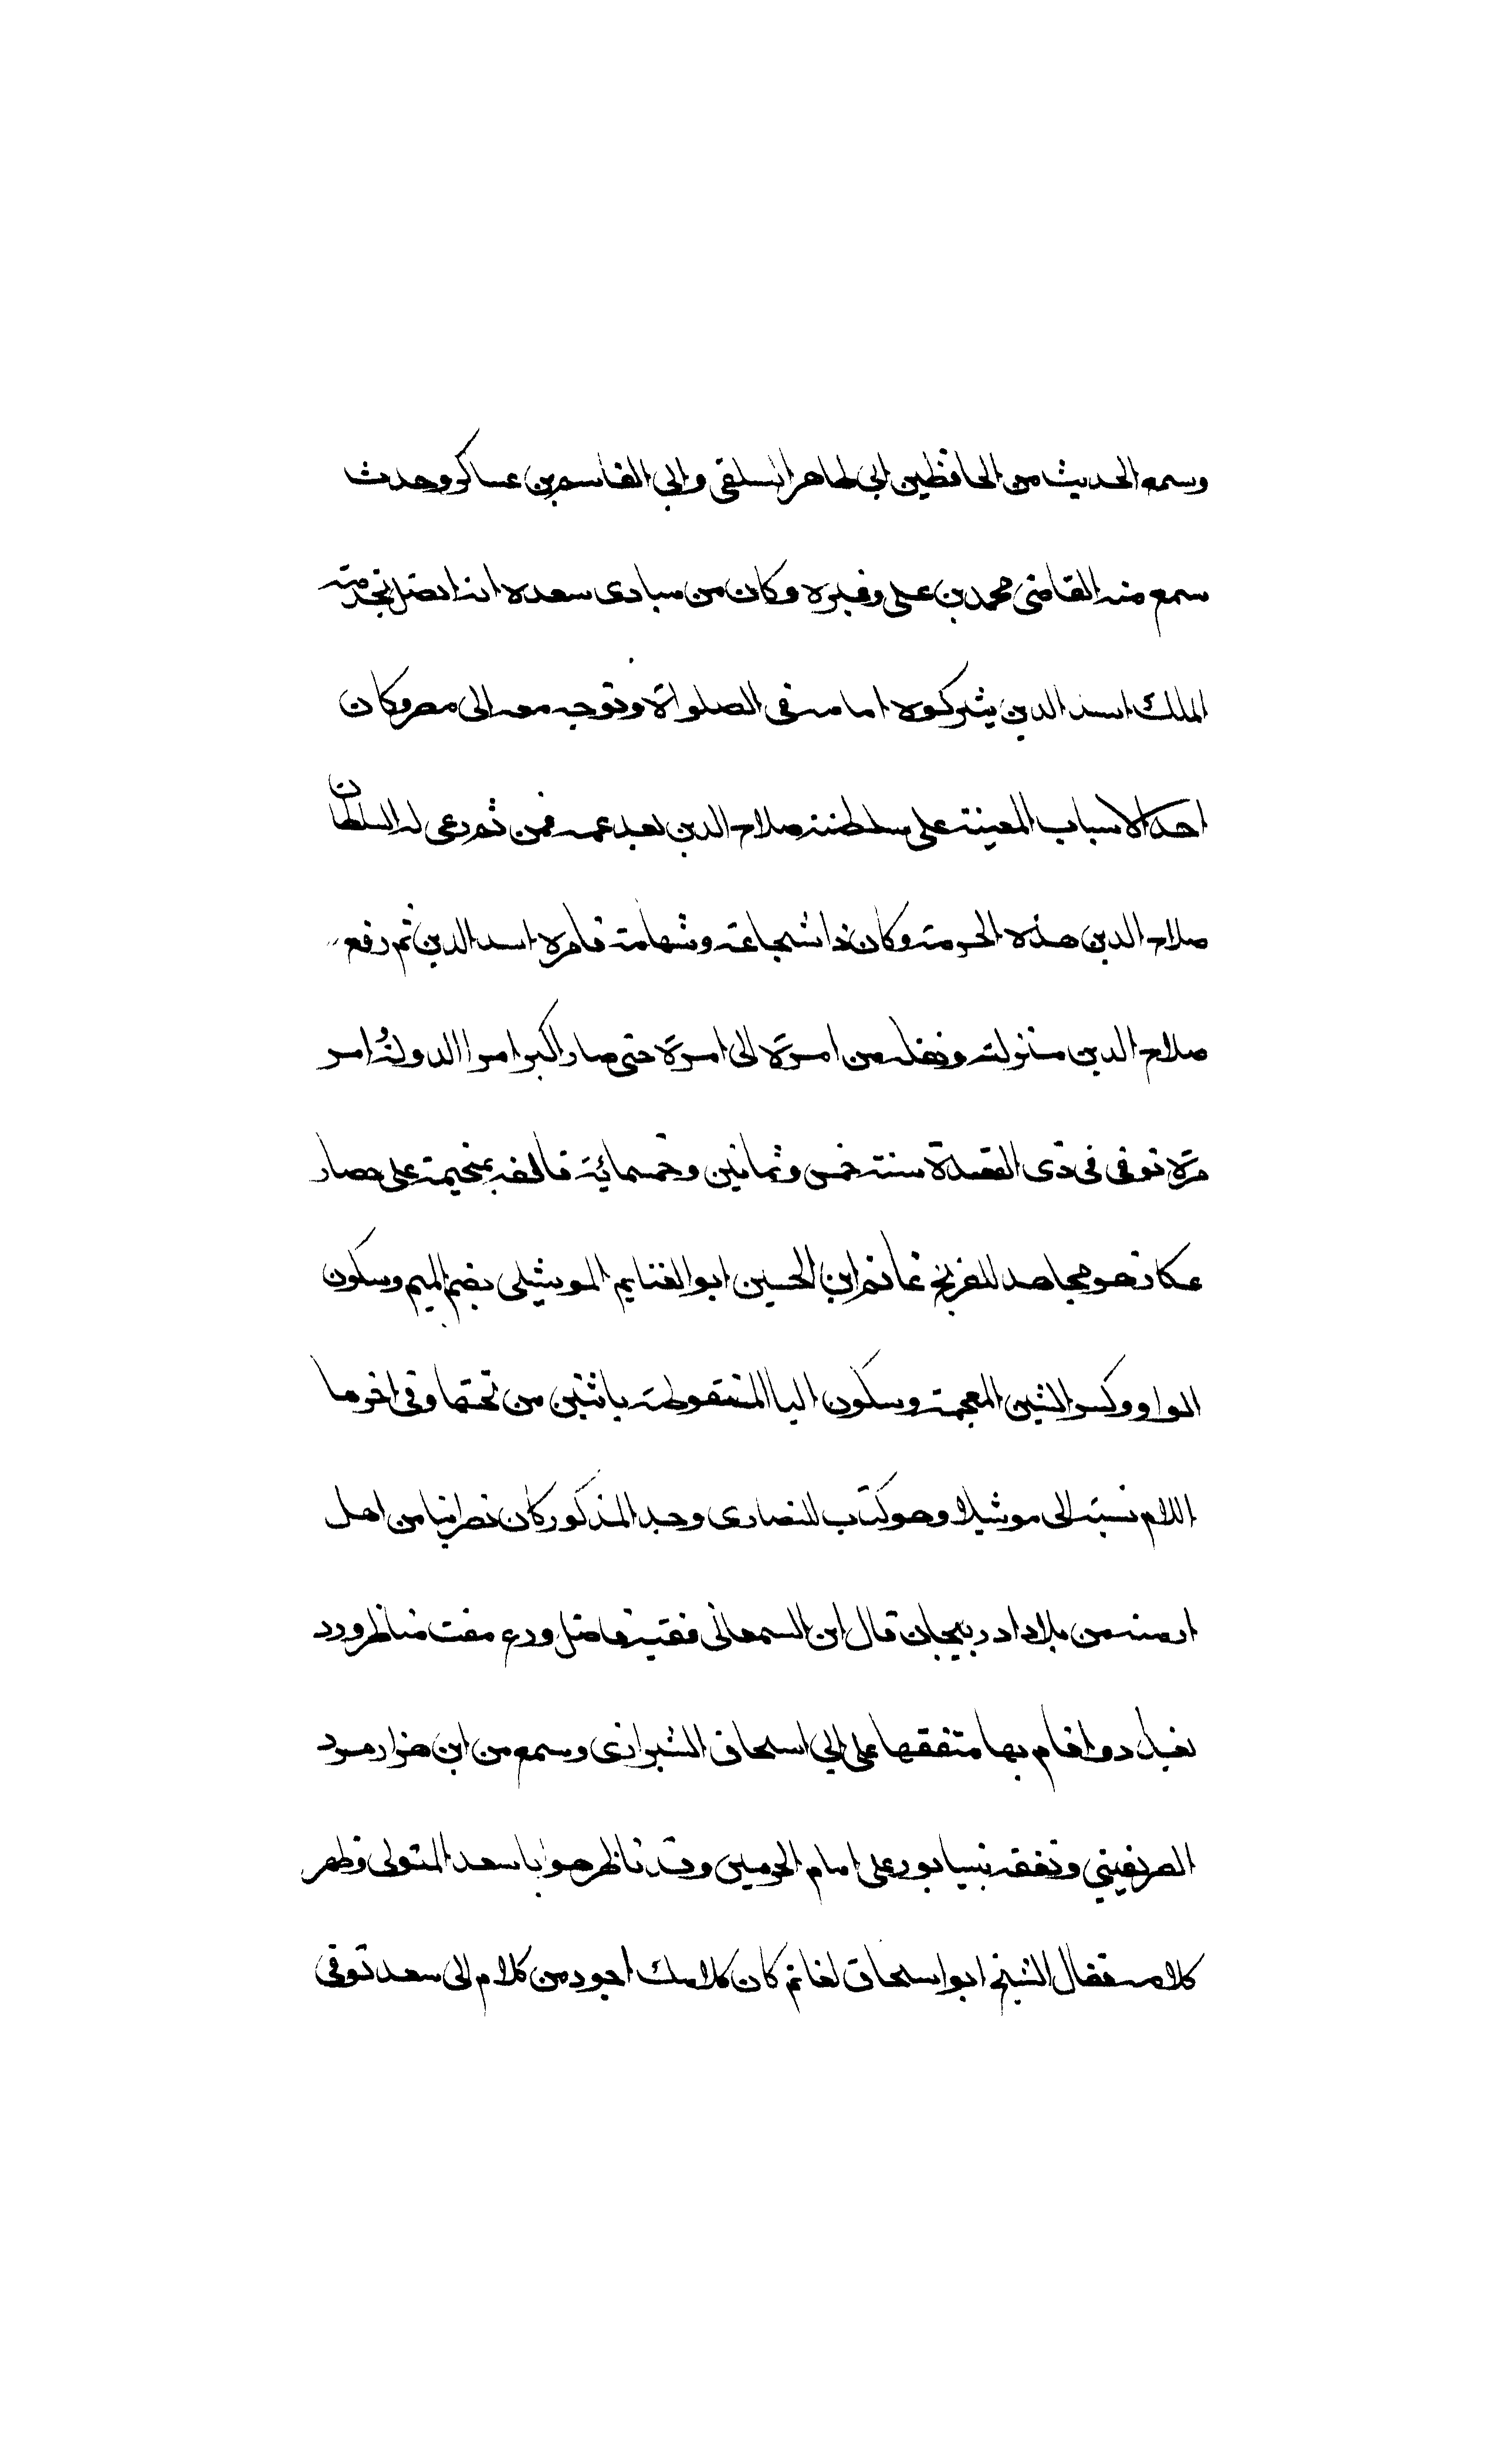 وسمع الحديث من الحافظين ابي طاهر السلفي وابي القاسم بن عساكر وحدث
سمع منه القاضي محمد بن علي وغيره وكان من مبادى سعده انه اتصل بخدمته
الملك اسد الدين شيركوه امامه في الصلوات وتوجه معه الى مصر وكان
احد الاسباب المعينة على سلطنته صلاح الدين بعد عمه فمن ثم رعى له السلطان
صلاح الدين هذه الحرمة وكان ذا شجاعة وشهامة فامره اسد الدين ثم رفع
صلاح الدين منزلته ونقله من امرة الى امرة حتى صار اكبر امرا الدولة امر
مرة توفي في ذى القعدة سنة خمس وثمانين وخمسمائة بمخيمة على حصار
عكا وهو مجاهد للفرنج غانم ابن الحسين ابو الغنايم الموشيلي بضم الميم وسكون
الواو وكسر الشين المعجمة وسكون اليا المنقوطة باثنين من تحتها وفي اخرها
اللام نسبة الى موشيلا وهو كتاب للنصارى وجد المذكور كان نصرانيا من اهل
ارمنه من بلاد ادربيجان قال ابن السمعاني فقيه فاضل ورع مفت مناظر ورد
بغداد واقام بها متفقها على ابي اسحاق الشيرازى وسمع من ابن هزارمرد
الصريفيني وتفقه بنيسابور على امام الحرمين وقد ناظر هو ابا سعد المتولى فظهر
كلامه فقال الشيخ ابو اسحاق لغانم كان كلامك اجود من كلام ابي سعد توفي